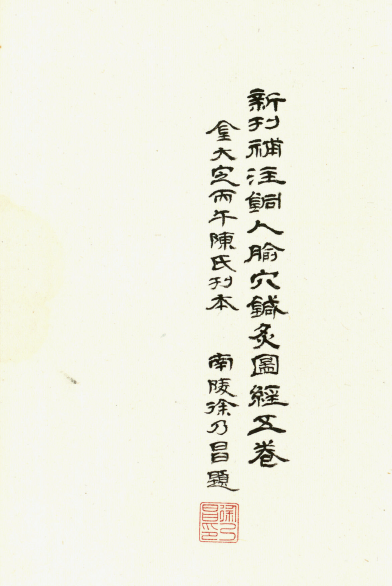 新刊補注銅人腧穴鍼灸圖經五卷
金大定丙午陳氏刊本 南陵徐乃昌題
徐乃昌印